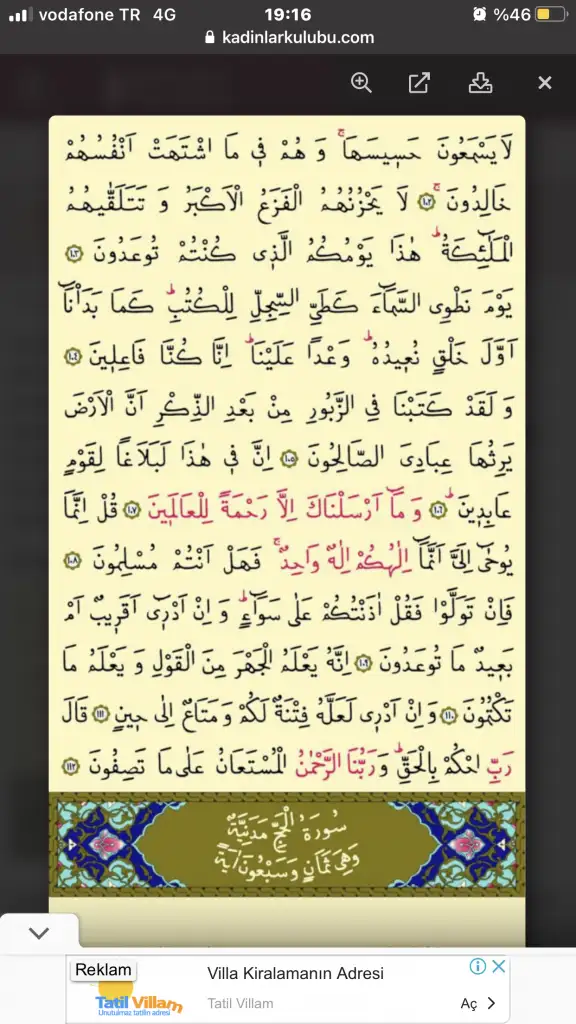 vodafone TR 4G 19:16 %46
kadinlarkulubu.com
لَا يَسْمَعُونَ حَسٖيسَهَاۚ وَ هُمْ فٖى مَا اشْتَهَتْ اَنْفُسُهُمْ
خَالِدُونَۚ ﴿١٠٢﴾ لَا يَحْزُنُهُمُ الْفَزَعُ الْاَكْبَرُ وَ تَتَلَقّٰيهُمُ
الْمَلٰٓئِكَةُؕ هٰذَا يَوْمُكُمُ الَّذٖى كُنْتُمْ تُوعَدُونَ ﴿١٠٣﴾
يَوْمَ نَطْوِى السَّمَٓاءَ كَطَىِّ السِّجِلِّ لِلْكُتُبِؕ كَمَا بَدَاْنَٓا
اَوَّلَ خَلْقٍ نُعٖيدُهُؕ وَعْدًا عَلَيْنَاؕ اِنَّا كُنَّا فَاعِلٖينَ ﴿١٠٤﴾
وَ لَقَدْ كَتَبْنَا فِى الزَّبُورِ مِنْ بَعْدِ الذِّكْرِ اَنَّ الْاَرْضَ
يَرِثُهَا عِبَادِىَ الصَّالِحُونَ ﴿١٠٥﴾ اِنَّ فٖى هٰذَا لَبَلَاغًا لِقَوْمٍ
عَابِدٖينَؕ ﴿١٠٦﴾ وَ مَٓا اَرْسَلْنَاكَ اِلَّا رَحْمَةً لِلْعَالَمٖينَ ﴿١٠٧﴾ قُلْ اِنَّمَا
يُوحٰٓى اِلَىَّ اَنَّمَٓا اِلٰهُكُمْ اِلٰهٌ وَاحِدٌۚ فَهَلْ اَنْتُمْ مُسْلِمُونَ ﴿١٠٨﴾
فَاِنْ تَوَلَّوْا فَقُلْ اٰذَنْتُكُمْ عَلٰى سَوَٓاءٍؕ وَ اِنْ اَدْرٖٓى اَقَرٖيبٌ اَمْ
بَعٖيدٌ مَا تُوعَدُونَ ﴿١٠٩﴾ اِنَّهُ يَعْلَمُ الْجَهْرَ مِنَ الْقَوْلِ وَ يَعْلَمُ مَا
تَكْتُمُونَ ﴿١١٠﴾ وَ اِنْ اَدْرٖى لَعَلَّهُ فِتْنَةٌ لَكُمْ وَ مَتَاعٌ اِلٰى حٖينٍ ﴿١١١﴾ قَالَ
رَبِّ احْكُمْ بِالْحَقِّؕ وَ رَبُّنَا الرَّحْمٰنُ الْمُسْتَعَانُ عَلٰى مَا تَصِفُونَ ﴿١١٢﴾
سُورَةُ الْحَجِّ مَدَنِيَّةٌ
وَهِىَ ثَمَانٍ وَسَبْعُونَ اٰيَةً
Reklam
Villa Kiralamanın Adresi
Tatil Villam
Unutulmaz tatilin adresi
Tatil Villam
Aç